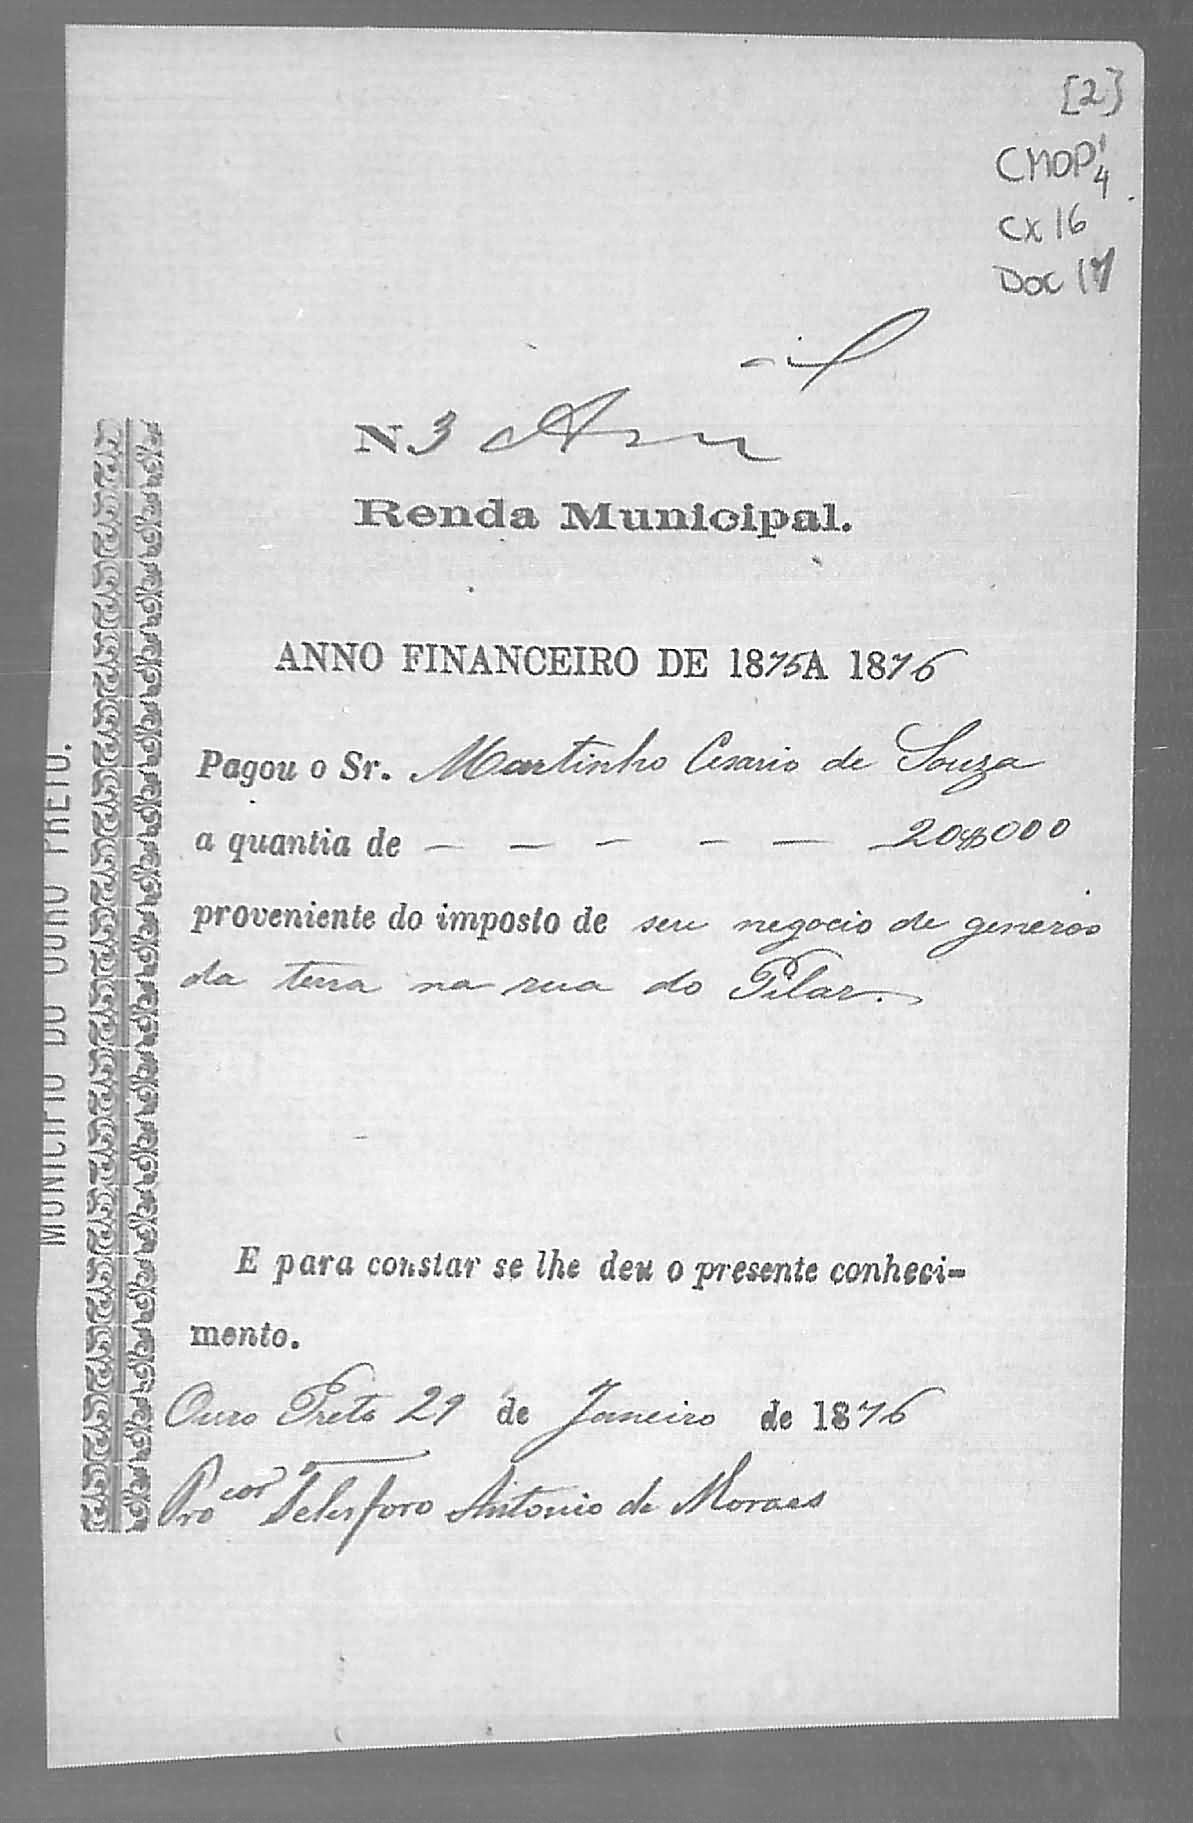 [2]
CMOP 1/4
CX 16
DOC 17
N. 3
Renda Municipal.
ANNO FINANCEIRO DE 1875 A 1876
Pagou o Sr. Martinho Cesario de Souza
a quantia de — — — — — 20$000
proveniente do imposto de seu negocio de generos
da terra na rua do Pilar.
E para constar se lhe deu o presente conheci-
mento.
Ouro Preto 29 de Janeiro de 1876
Pro.cor Telesforo Antonio de Moraes
MUNICIPIO DO OURO PRETO.